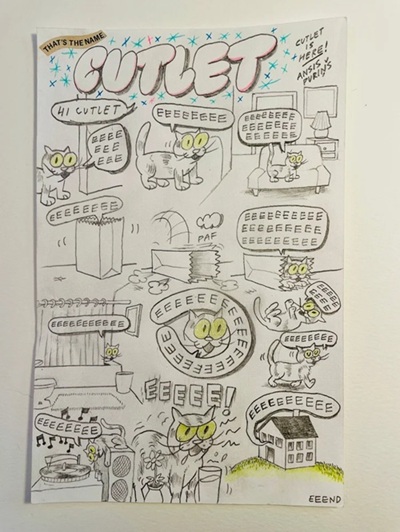 THAT'S THE NAME
CUTLET
CUTLET
IS
HERE!
ANSIS
PURINS
HI CUTLET
EEEE
EEE
EEE
EEEEEEE
EEEEEE
EEEEEEE
EEEEEE
EEEEEEEE
PAF
EEEEEEEEE
EEEEEEEEE
EEEEEEE
EEEEEEEEE
EEEE
EEEE
EEEEEEE
EEEEEEE
EEEEE!
EEEEEEEEE
EEEND